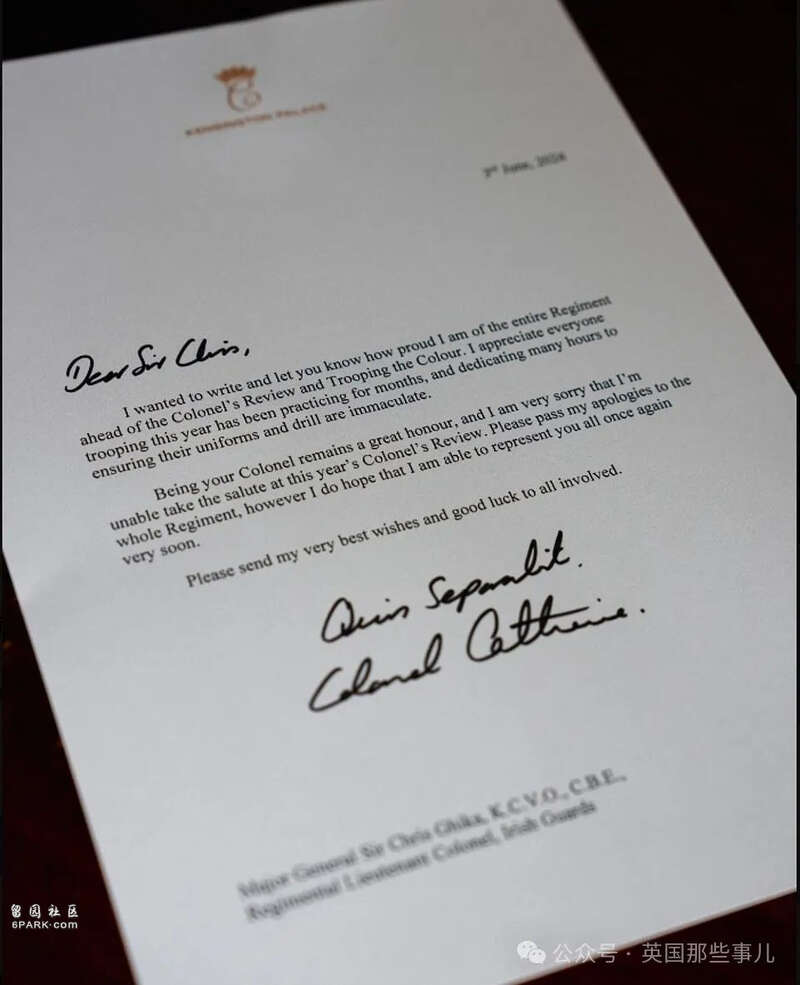 KENSINGTON PALACE
3rd June, 2024
Dear Sir Chris,
I wanted to write and let you know how proud I am of the entire Regiment
ahead of the Colonel's Review and Trooping the Colour. I appreciate everyone
trooping this year has been practicing for months, and dedicating many hours to
ensuring their uniforms and drill are immaculate.
Being your Colonel remains a great honour, and I am very sorry that I'm
unable take the salute at this year's Colonel's Review. Please pass my apologies to the
whole Regiment, however I do hope that I am able to represent you all once again
very soon.
Please send my very best wishes and good luck to all involved.
Quis Separabit.
Colonel Catherine.
Major General Sir Chris Ghika, K.C.V.O., C.B.E.,
Regimental Lieutenant Colonel, Irish Guards
留园社区
6PARK.COM
公众号 · 英国那些事儿